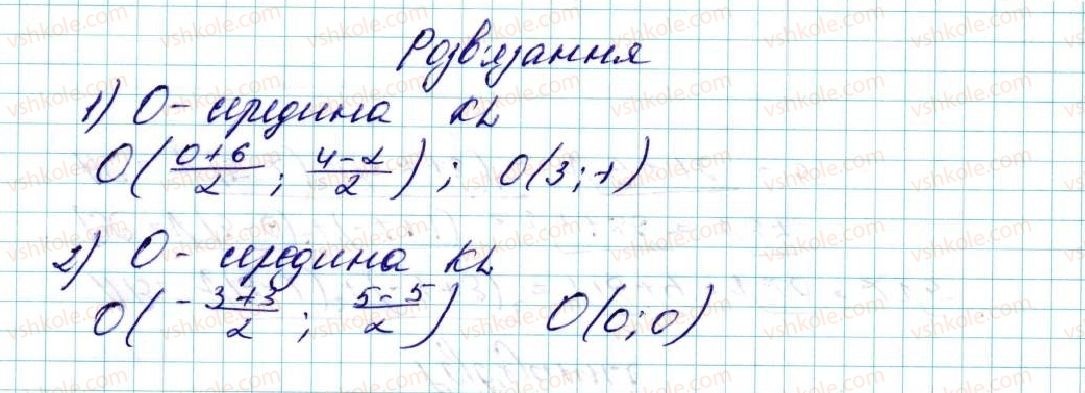 Розв'язання
1) О - середина KL
О(0+6/2 ; 4-2/2) ; О(3;1)
2) О - середина KL
О(-3+3/2 ; 5-5/2) О(0;0)